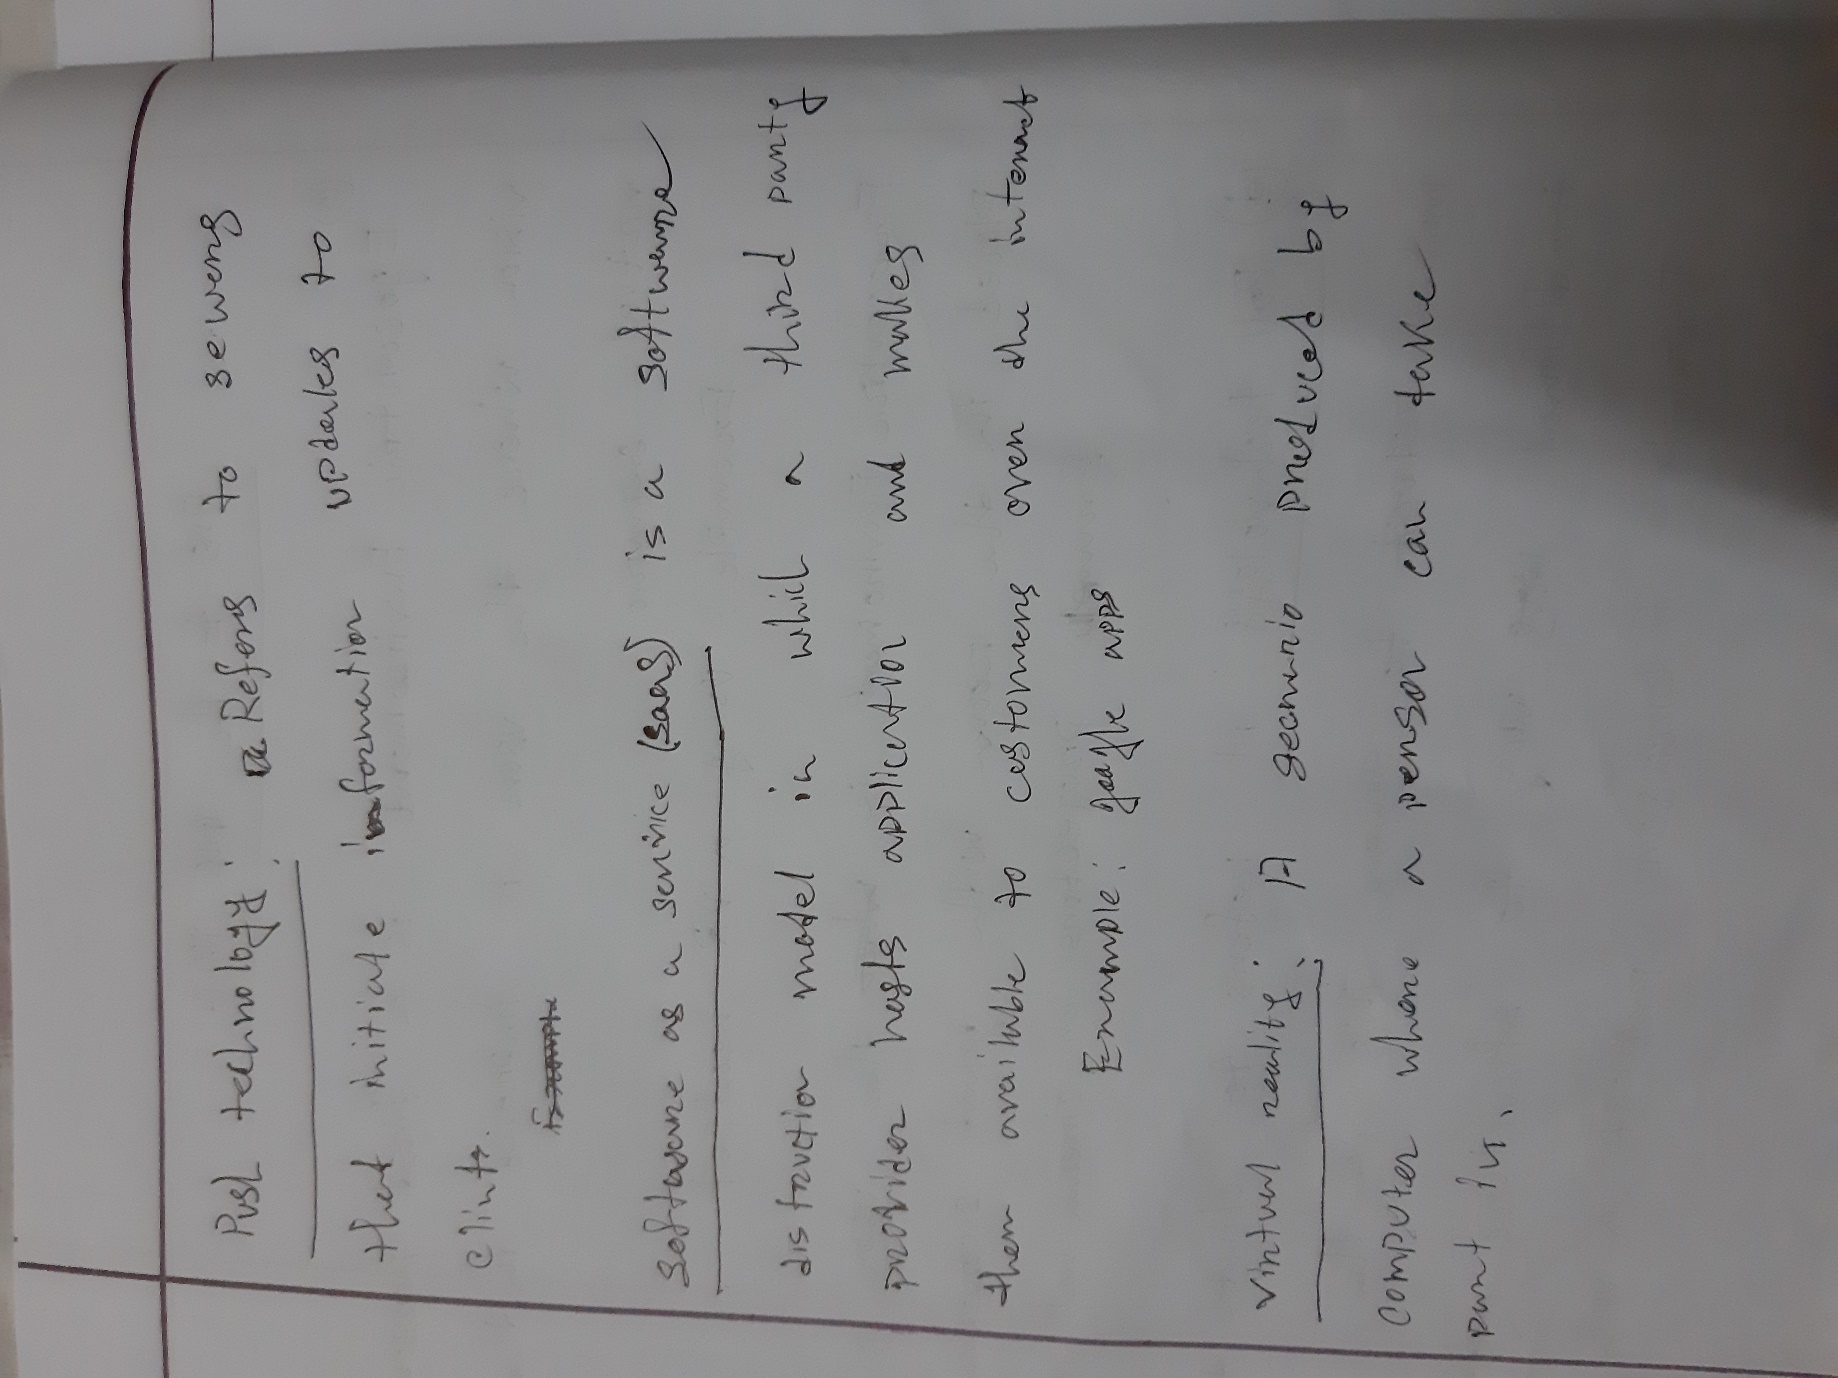 Push technology: Refers to servers
that initiate information updates to
clint.
Software as a service (saas) is a software
distruction model in which a third party
provider hosts application and makes
them available to customers over the internet
Example: google apps
Virtual reality: A scenario produced by
computer where a person can take
part in.